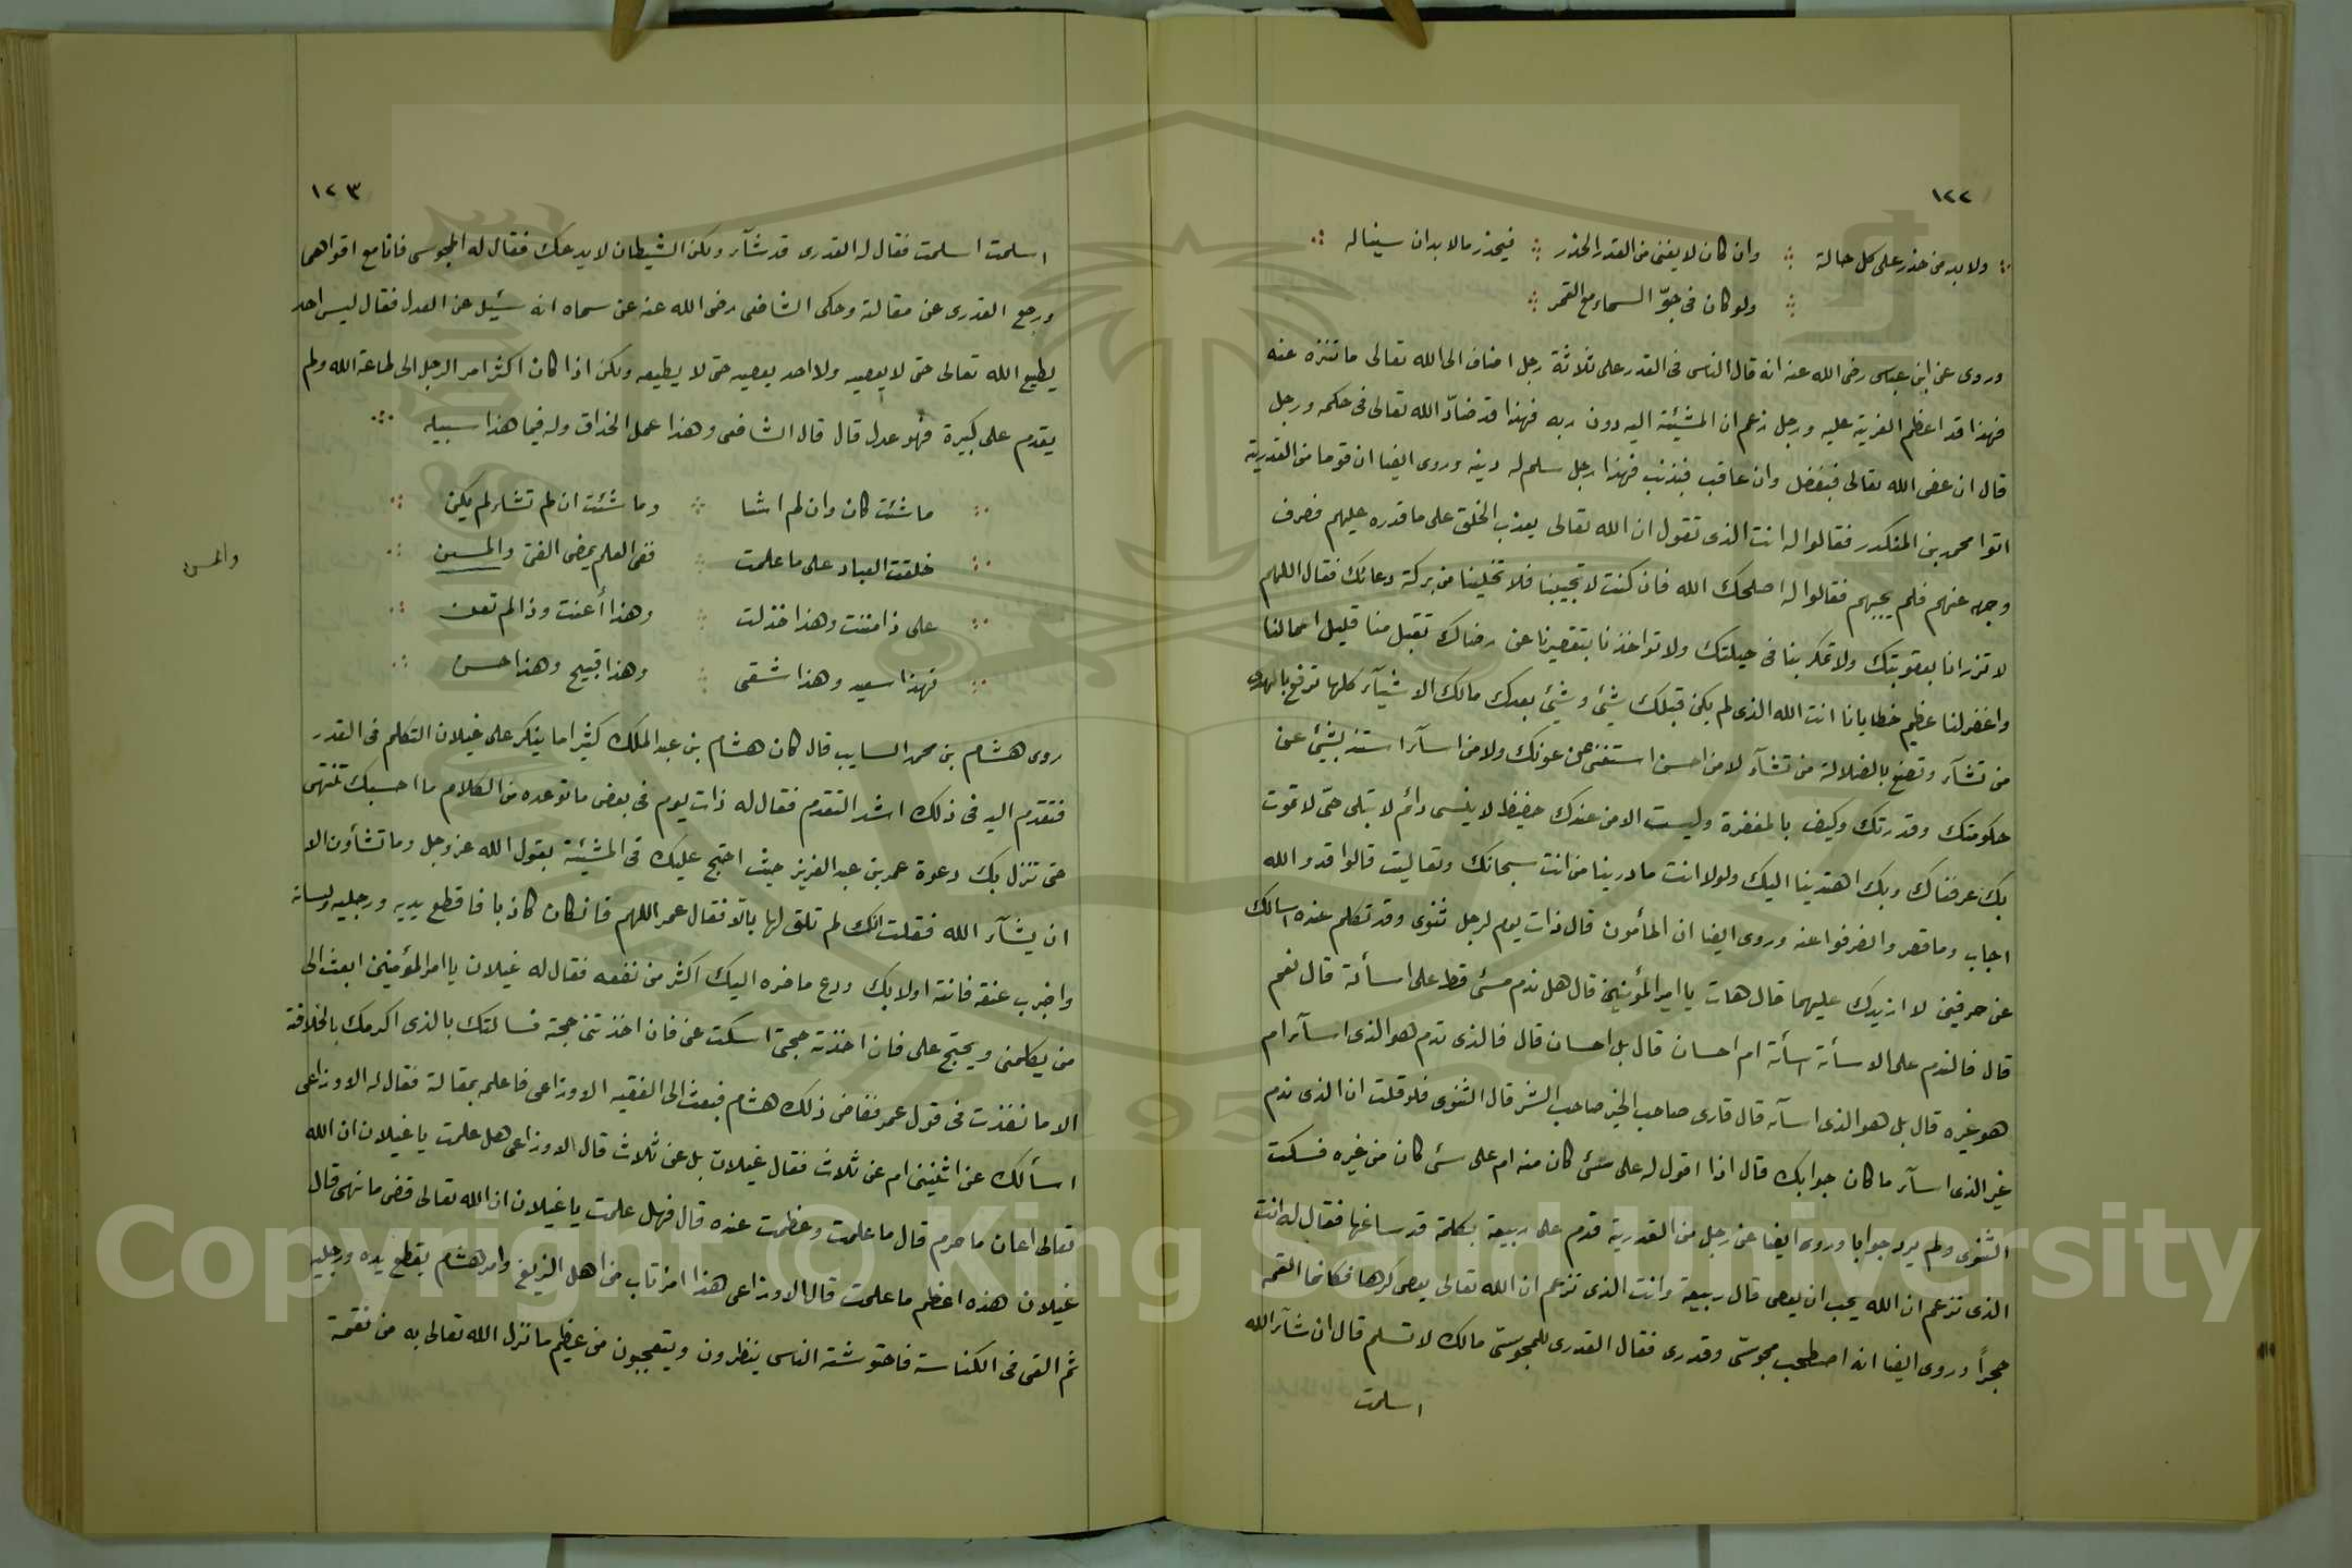 ١٢٢
ولا بد من حذر على كل حالة وان كان لا يغنى من القدر الحذر فيحذر مالا بد ان سيناله
ولو كان فى جوّ السماء مع القمر
وروى عن ابن عباس رضى الله عنه انه قال الناس فى القدر على ثلاثة رجل اضاف الى الله تعالى ما تنزه عنه
فهذا قد اعظم الفرية عليه ورجل زعم ان المشيئة اليه دون ربه فهذا قد ضادّ الله تعالى فى حكمه ورجل
قال ان عفى الله تعالى فبفضل وان عاقب فبذنب فهذا رجل سلم له دينه وروى ايضا ان قوما من القدرية
اتوا محمد بن المنكدر فقالوا له انت الذى تقول ان الله تعالى يعذب الخلق على ما قدره عليهم فصرف
وجهه عنهم فلم يجيبهم فقالوا له اصلحك الله فان كنت لا تجيبنا فلا تخلينا من بركة دعائك فقال اللهم
لا تزرانا بعقوبتك ولا تمكر بنا فى حيلتك ولا تواخذنا بتقصيرنا عن رضاك تقبل منا قليل اعمالنا
واغفر لنا عظيم خطايانا انت الله الذى لم يكن قبلك شيئ وشيئ بعدك مالك الاشيآء كلها ترفع بالهدى
من تشآء وتضع بالضلالة من تشآء لا من احسن استغنى عن عونك ولا من اسآء استذ بشيئ عن
حكومتك وقدرتك وكيف بالمغفرة وليست الا من عندك حفيظ لا ينسى دائم لا تبلى حىّ لا تموت
بك عرفناك وبك اهتدينا اليك ولولا انت مادرينا من انت سبحانك وتعاليت قالوا قد والله
اجاب وما قصر وانصرفوا عنه وروى ايضا ان المأمون قال ذات يوم لرجل ثنوى وقد تكلم عنده اسالك
عن حرفين لا ازيدك عليهما قال هات يا امير المؤمنين قال هل ندم مسئ قط على اسأئة قال نعم
قال فالندم على الاسأئة اسأئة ام احسان قال بل احسان قال فالذى ندم هو الذى اسآء ام
هو غيره قال بل هو الذى اسآء قال فارى صاحب الخير صاحب الشر قال الثنوى فلو قلت ان الذى ندم
غير الذى اسآء ما كان جوابك قال اذا اقول له على شئ كان منه ام على شئ كان من غيره فسكت
الثنوى ولم يرد جوابا وروى ايضا عن رجل من القدرية قدم على ربيعة بكلمة قد ساغها فقال له انت
الذى تزعم ان الله يحب ان يعصى قال ربيعة وانت الذى تزعم ان الله تعالى يعصى كرها فكانما القمه
حجراً وروى ايضا انه اصطحب مجوسّى وقدرى فقال القدرى للمجوسىّ مالك لا تسلم قال ان شآء الله
اسلمت
١٢٣
اسلمت اسلمت فقال له القدرى قد شآء ولكن الشيطان لا يدعك فقال له المجوسى فانا مع اقواهما
ورجع القدرى عن مقالته وحكى الشافعى رضى الله عنه عن سماه انه سئيل عن العدل فقال ليس احد
يطيع الله تعالى حتى لا يعصيه ولا احد يعصيه حتى لا يطيعه ولكن اذا كان اكثر امر الرجل الى طاعة الله ولم
يقدم على كبيرة فهو عدل قال قال الشافعى وهذا عمل الحذاق وله فيما هذا سبيله
ما شئت كان وان لم اشا وما شئت ان لم تشاء لم يكن
خلقت العباد على ما علمت ففى العلم يمضى الفتى والمسن
والمسن
على ذا مننت وهذا خذلت وهذا أعنت وذا لم تعن
فهذا سعيد وهذا شقى وهذا قبيح وهذا حسن
روى هشام بن محمد السايب قال كان هشام بن عبد الملك كثيرا ما ينكر على غيلان التكلم فى القدر
فتقدم اليه فى ذلك اشد التقدم فقال له ذات يوم فى بعض ما توعده من الكلام ما احسبك تنتهى
حتى تنزل بك دعوة عمر بن عبد العزيز حيث احتج عليك فى المشيئة بقول الله عز وجل وما تشأون الا
ان يشآء الله فقلت انك لم تلق لها بالًا فقال عمر اللهم فان كان كاذبا فاقطع يديه ورجليه ولسانه
واضرب عنقه فانته اولا بك ودع ما ضره اليك اكثر من نفعه فقال له غيلان يا امر المؤمنين ابعث الى
من يكلمنى ويحتج على فان اخذته حجتى اسكت عنى فان اخذتنى حجته فسالتك بالذى اكرمك بالخلافة
الا ما نفذت فى قول عمر فغاض ذلك هشام فبعث الى الفقيه الاوزاعى فاعلمه بمقالة فقال له الاوزاعى
اسألك عن اثنين ام عن ثلاث فقال غيلان بل عن ثلاث قال الاوزاعى هل علمت يا غيلان ان الله
تعالى اعان ما حرم قال ما علمت وعظمت عنده قال فهل علمت يا غيلان ان الله تعالى قضى ما نهى قال
غيلان هذه اعظم ما علمت قال الاوزاعى هذا امرتاب من اهل الزيغ وامر هشام بقطع يده ورجليه
ثم القى فى الكناسة فاحتوشته الناس ينظرون ويتعجبون من عظيم ما نزل الله تعالى به من نقمة
Copyright © King Saud University